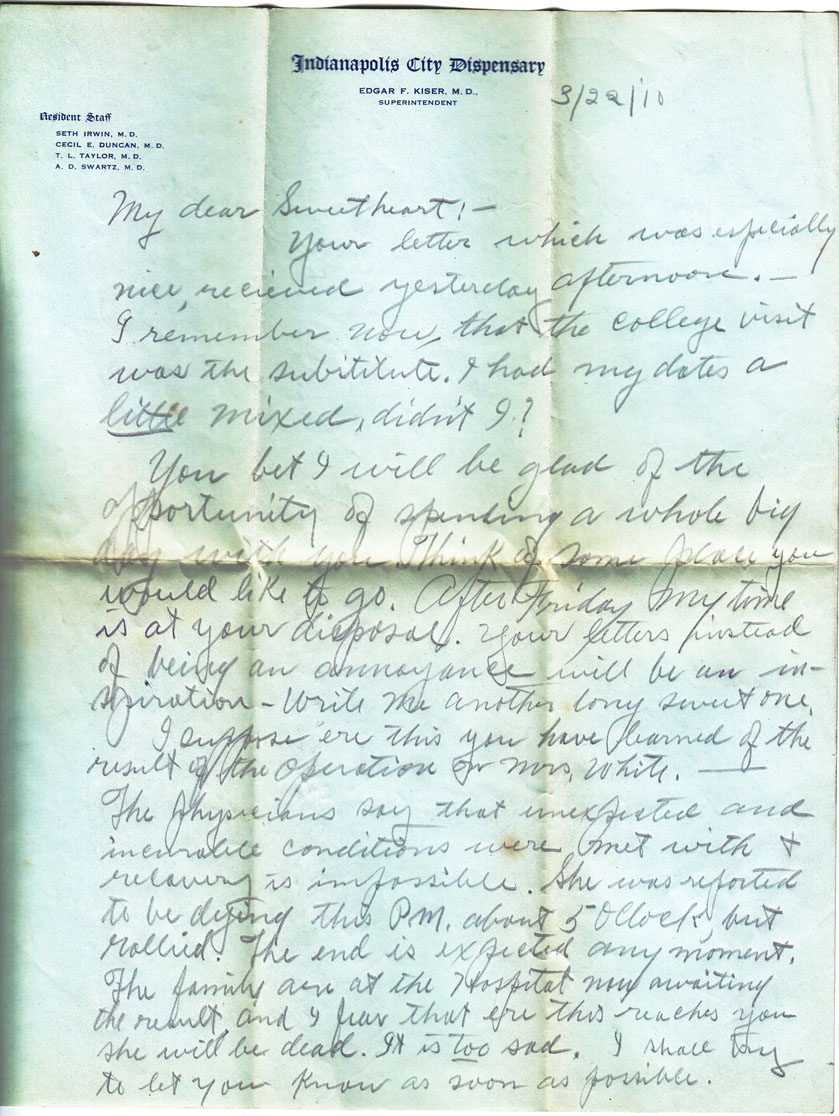 Indianapolis City Dispensary
EDGAR F. KISER, M. D.,
SUPERINTENDENT
3/22/10
Resident Staff
SETH IRWIN, M. D.
CECIL E. DUNCAN, M. D.
T. L. TAYLOR, M. D.
A. D. SWARTZ, M. D.
My dear Sweetheart! —
Your letter which was especially
nice, recieved yesterday afternoon. —
I remember now, that the college visit
was the subititute. I had my dates a
little mixed, didn't I?
You bet I will be glad of the
opportunity of spending a whole big
day with you. Think of some place you
would like to go. After Friday my time
is at your disposal. Your letters instead
of being an annoyance will be an in-
spiration – Write me another long sweet one.
I suppose ere this you have learned of the
result of the operation on Mrs. White. —
The physicians say that unexpected and
incurable conditions were met with &
recovery is impossible. She was reported
to be dying this P.M. about 5 O'Clock, but
rallied. The end is expected any moment.
The family are at the Hospital now awaiting
the result, and I fear that ere this reaches you
she will be dead. It is too sad. I shall try
to let you know as soon as possible.